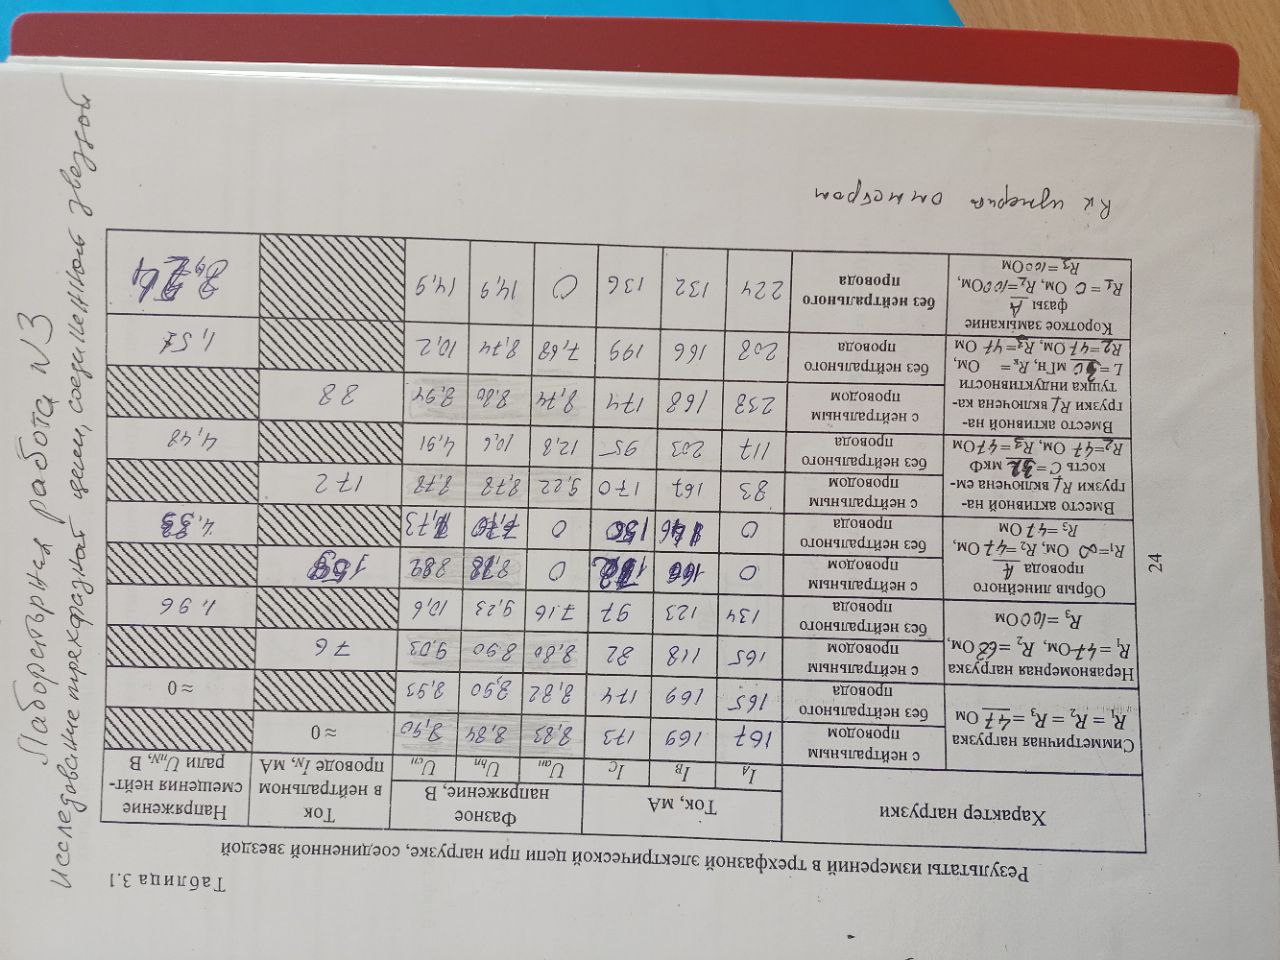 Таблица 3.1
Результаты измерений в трехфазной электрической цепи при нагрузке, соединенной звездой
Характер нагрузки Ток, мА Фазное напряжение, В Ток в нейтральном проводе I_N, мА Напряжение смещения нейтрали U_nN, В
I_A I_B I_C U_an U_bn U_cn
Симметричная нагрузка R₁ = R₂ = R₃ = 47 Ом
с нейтральным проводом 167 169 173 8,83 8,84 8,90 ≈ 0
без нейтрального провода 165 169 174 8,82 8,90 8,93 ≈ 0
Неравномерная нагрузка R₁ = 47 Ом, R₂ = 68 Ом, R₃ = 100 Ом
с нейтральным проводом 165 118 82 8,80 8.90 9,03 76
без нейтрального провода 134 123 97 7.16 9,23 10,6 1,96
Обрыв линейного провода A R₁=∞ Ом, R₂=47 Ом, R₃=47 Ом
с нейтральным проводом 0 0
без нейтрального провода 0 146 150 0
Вместо активной нагрузки R1 включена емкость C = 32 мкФ R2=47 Ом, R3=47 Ом
с нейтральным проводом 83 167 170 9,22 8,78 8,78 172
без нейтрального провода 117 203 95 12,8 10,6 4,91 4,48
Вместо активной нагрузки R1 включена катушка индуктивности L = 30 мГн, Rк = Ом, R2=47 Ом, R3=47 Ом
с нейтральным проводом 238 168 174 8,74 8.80 8,94 88
без нейтрального провода 208 166 199 7,68 8,74 10,2
Короткое замыкание фазы A R1 = 0 Ом, R2=100 Ом, R3=100 Ом
без нейтрального провода 224 132 136 0 14,9 14,9
Rк измерить омметром
24
Лабораторная работа N3
Исследование трехфазной цепи, соединенной звездой